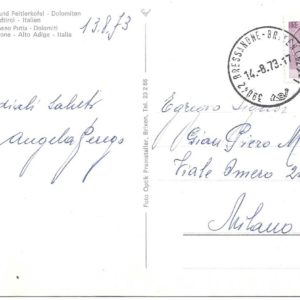 und Peitlerkofel - Dolomiten
dtirol - Italien
sso Putia - Dolomiti
one - Alto Adige - Italia
13.8.73
rdiali Saluti
Angela
Foto Optik Prunstaller, Brixen, Tel. 23 2 66
BRESSANONE - BR
39042
14.-8.73-17
Egregio Signor
Gian Piero M
Viale Omero 2
Milano